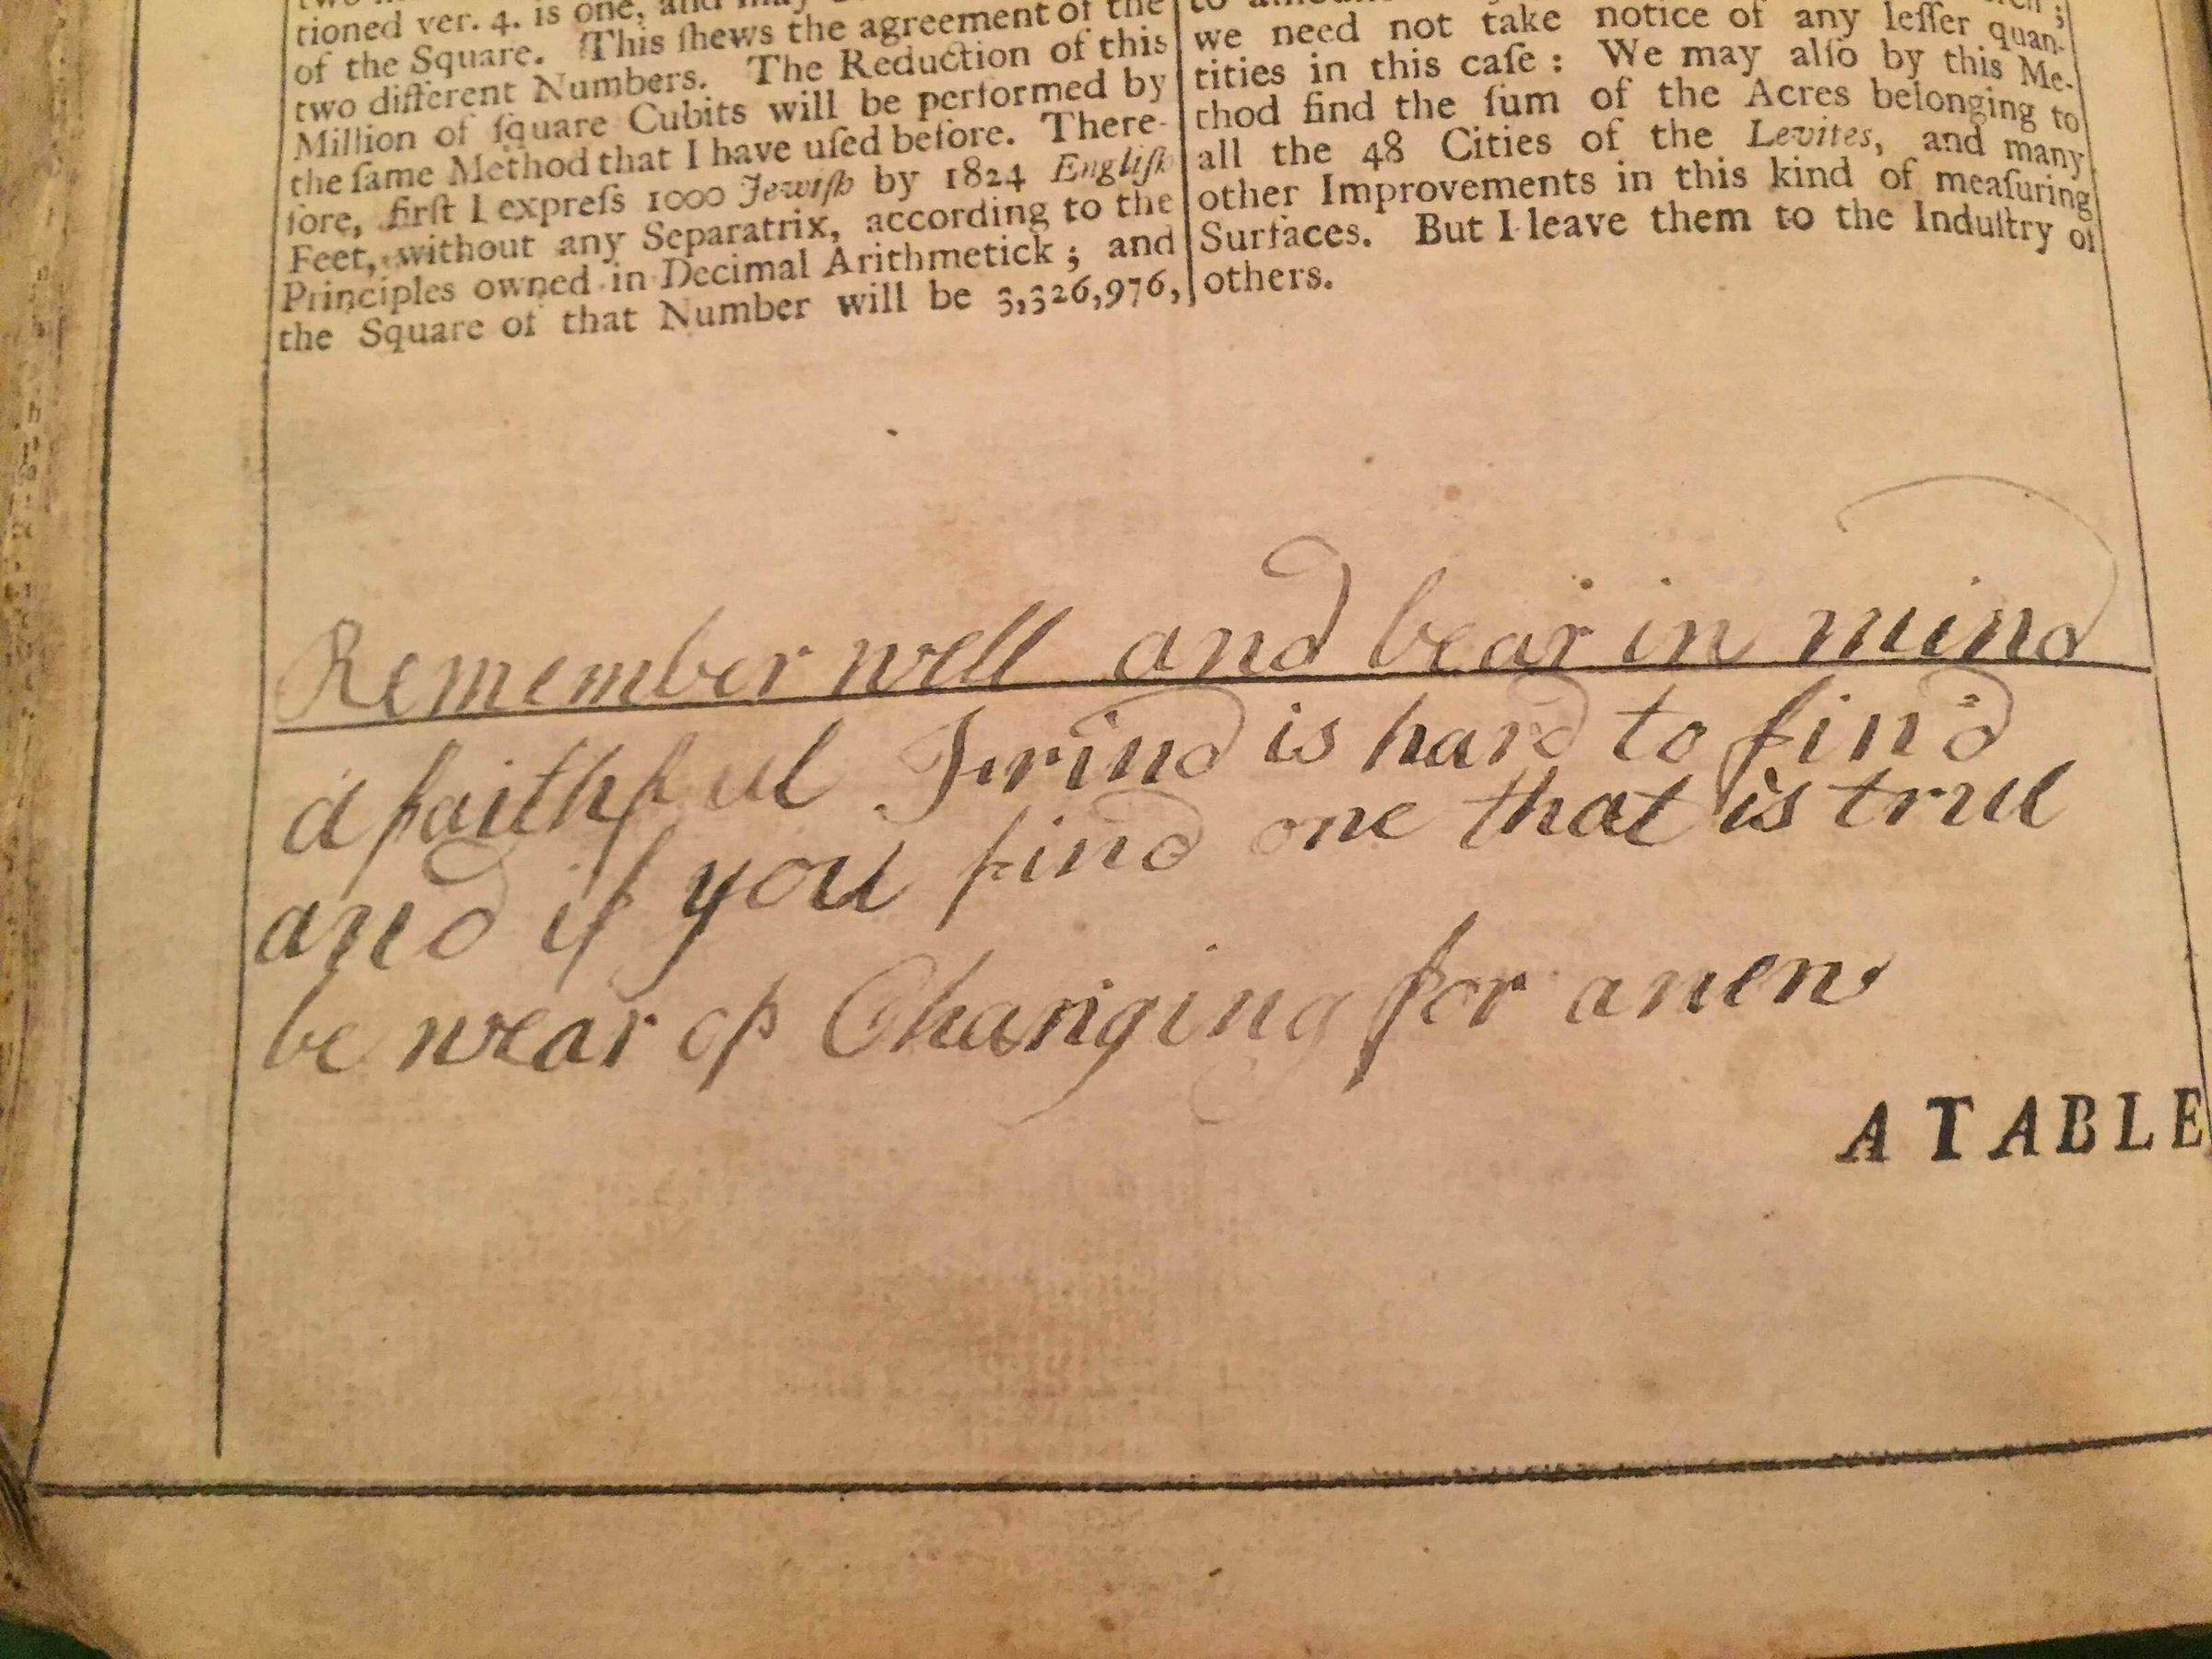 tioned ver. 4. is one, and may
of the Square. This ſhews the agreement of the
two different Numbers. The Reduction of this
Million of ſquare Cubits will be performed by
the ſame Method that I have uſed before. There-
fore, firſt I expreſs 1000 Jewiſh by 1824 Engliſh
Feet, without any Separatrix, according to the
Principles owned in Decimal Arithmetick ; and
the Square of that Number will be 3,326,976,
we need not take notice of any leſſer quan-
tities in this caſe : We may alſo by this Me-
thod find the ſum of the Acres belonging to
all the 48 Cities of the Levites, and many
other Improvements in this kind of meaſuring
Surfaces. But I leave them to the Induſtry of
others.
Remember well and bear in mind
a faithful Frind is hard to find
and if you find one that is true
be wear of Changing for a new
A TABLE